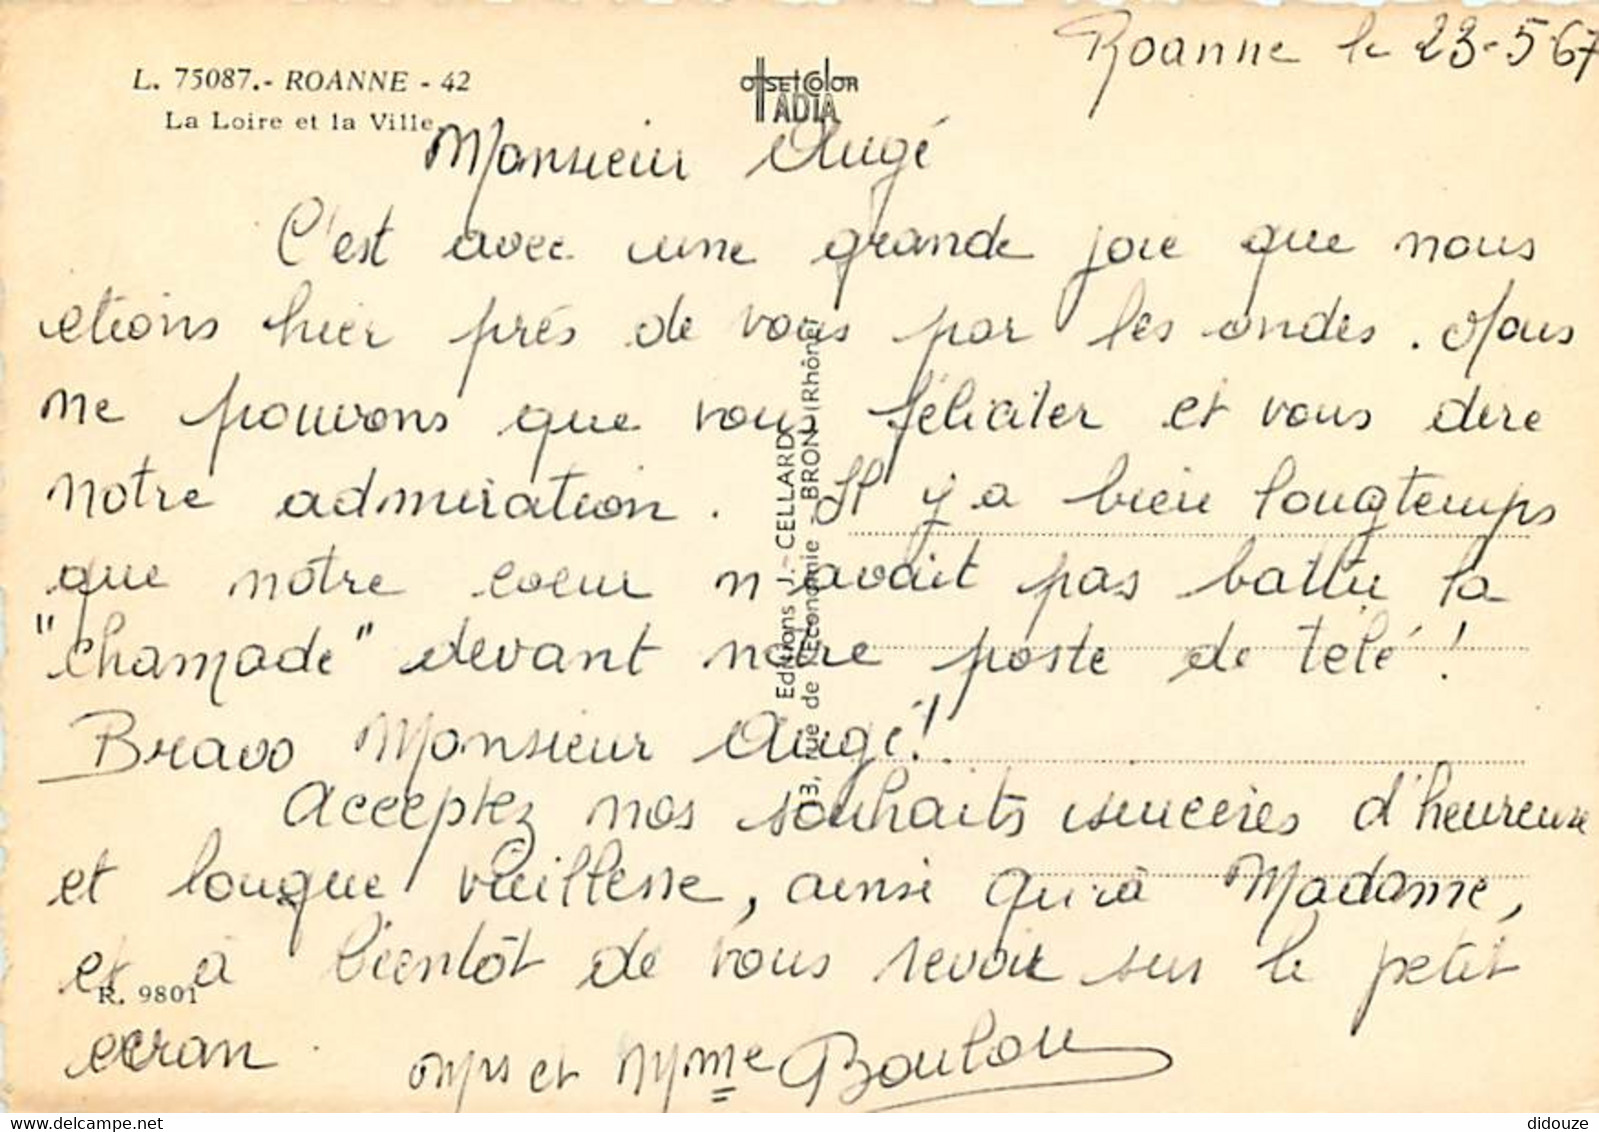 Roanne le 23-5-67
L. 75087.- ROANNE - 42
La Loire et la Ville.
OffsetColor
IADIA
Monsieur Augé
C'est avec une grande joie que nous
etions hier prés de vous par les ondes. Nous
ne pouvons que vous féliciter et vous dire
notre admiration. Il y a bien longtemps
que notre coeur n'avait pas battu la
"chamade" devant notre poste de télé!
Bravo Monsieur Augé!
Acceptez nos souhaits sincères d'heureuse
et longue vieillesse, ainsi qu'à Madame,
et à bientôt de vous revoir sur le petit
ecran.
Mrs et Mme Boulou
R. 9801
Editions J. CELLARD
rue de l'Economie - BRON (Rhône)
delcampe.net
didouze